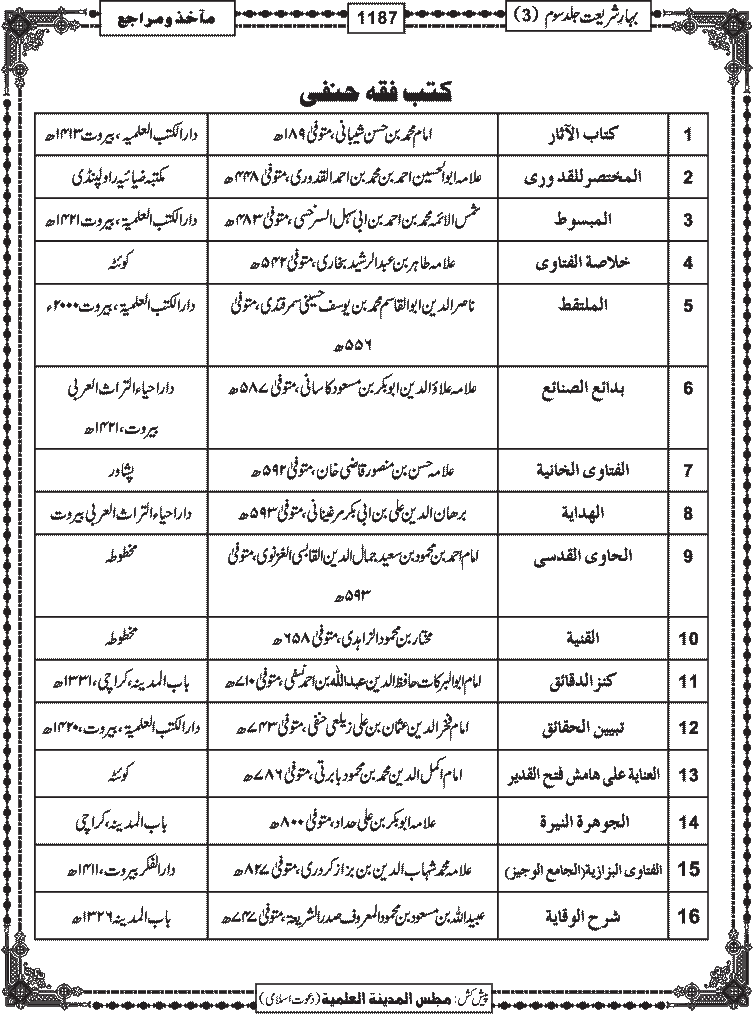 بہار شریعت جلد سوم (3)
1187
مآخذ و مراجع
کتب فقہ حنفی
1 کتاب الآثار امام محمد بن حسن شیبانی، متوفیٰ ۱۸۹ھ دار الکتب العلمیہ، بیروت ۱۴۱۳ھ
2 المختصر للقدوری علامہ ابوالحسین احمد بن محمد بن احمد القدوری، متوفیٰ ۴۴۸ھ مکتبہ ضیائیہ راولپنڈی
3 المبسوط شمس الائمہ محمد بن احمد بن ابی سہل السرخسی، متوفیٰ ۴۸۳ھ دار الکتب العلمیۃ، بیروت ۱۴۲۱ھ
4 خلاصة الفتاوی علامہ طاہر بن عبد الرشید بخاری، متوفیٰ ۵۴۲ھ کوئٹہ
5 الملتقط ناصر الدین ابوالقاسم محمد بن یوسف حسینی سمرقندی، متوفیٰ دار الکتب العلمیۃ، بیروت ۲۰۰۰ء
۵۵۶ھ
6 بدائع الصنائع علامہ علاؤ الدین ابوبکر بن مسعود کاسانی، متوفیٰ ۵۸۷ھ دار احیاء التراث العربی
بیروت، ۱۴۲۱ھ
7 الفتاوی الخانیة علامہ حسن بن منصور قاضی خان، متوفیٰ ۵۹۲ھ پشاور
8 الهدایة برھان الدین علی بن ابی بکر مرغینانی، متوفیٰ ۵۹۳ھ دار احیاء التراث العربی بیروت
9 الحاوی القدسی امام احمد بن محمود بن سعید جمال الدین القابسی الغزنوی، متوفیٰ مخطوطہ
۵۹۳ھ
10 القنیة مختار بن محمود الزاہدی، متوفیٰ ۶۵۸ھ مخطوطہ
11 کنز الدقائق امام ابوالبرکات حافظ الدین عبداللہ بن احمد نسفی، متوفیٰ ۷۱۰ھ باب المدینہ، کراچی، ۱۳۳۱ھ
12 تبیین الحقائق امام فخر الدین عثمان بن علی زیلعی حنفی، متوفیٰ ۷۴۳ھ دار الکتب العلمیۃ، بیروت، ۱۴۲۰ھ
13 العنایة علی هامش فتح القدیر امام اکمل الدین محمد بن محمود بابرتی، متوفیٰ ۷۸۶ھ کوئٹہ
14 الجوهرة النیرة علامہ ابوبکر بن علی حداد، متوفیٰ ۸۰۰ھ باب المدینہ، کراچی
15 الفتاوی البزازیة (الجامع الوجیز) علامہ محمد شہاب الدین بن بزاز کردری، متوفیٰ ۸۲۷ھ دار الفکر بیروت، ۱۴۱۱ھ
16 شرح الوقایة عبیداللہ بن مسعود بن محمود المعروف صدر الشریعۃ، متوفیٰ ۷۴۷ھ باب المدینہ ۱۳۲۶ھ
پیش کش: مجلس المدینة العلمیة (دعوت اسلامی)